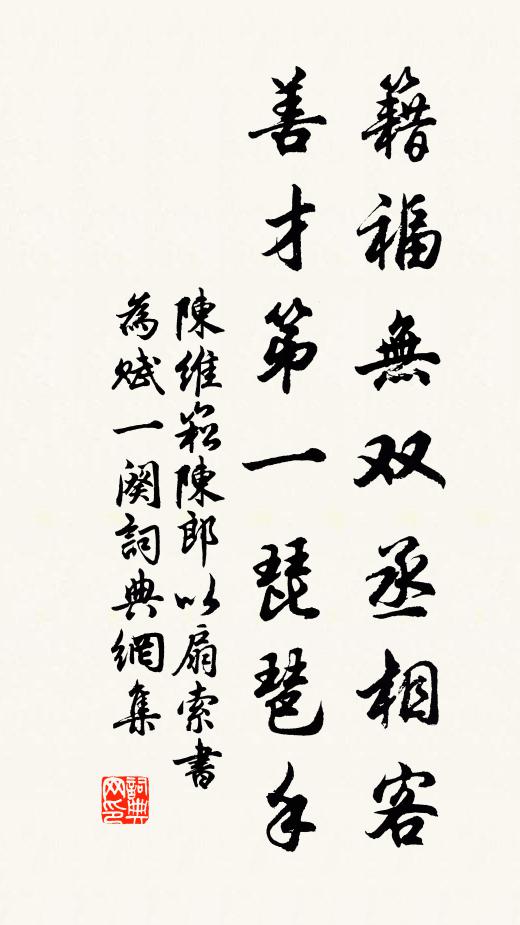 籍福無双丞相客
善才第一琵琶手
陳維崧陳郎以扇索書
為賦一阕詞典網集
詞典网印